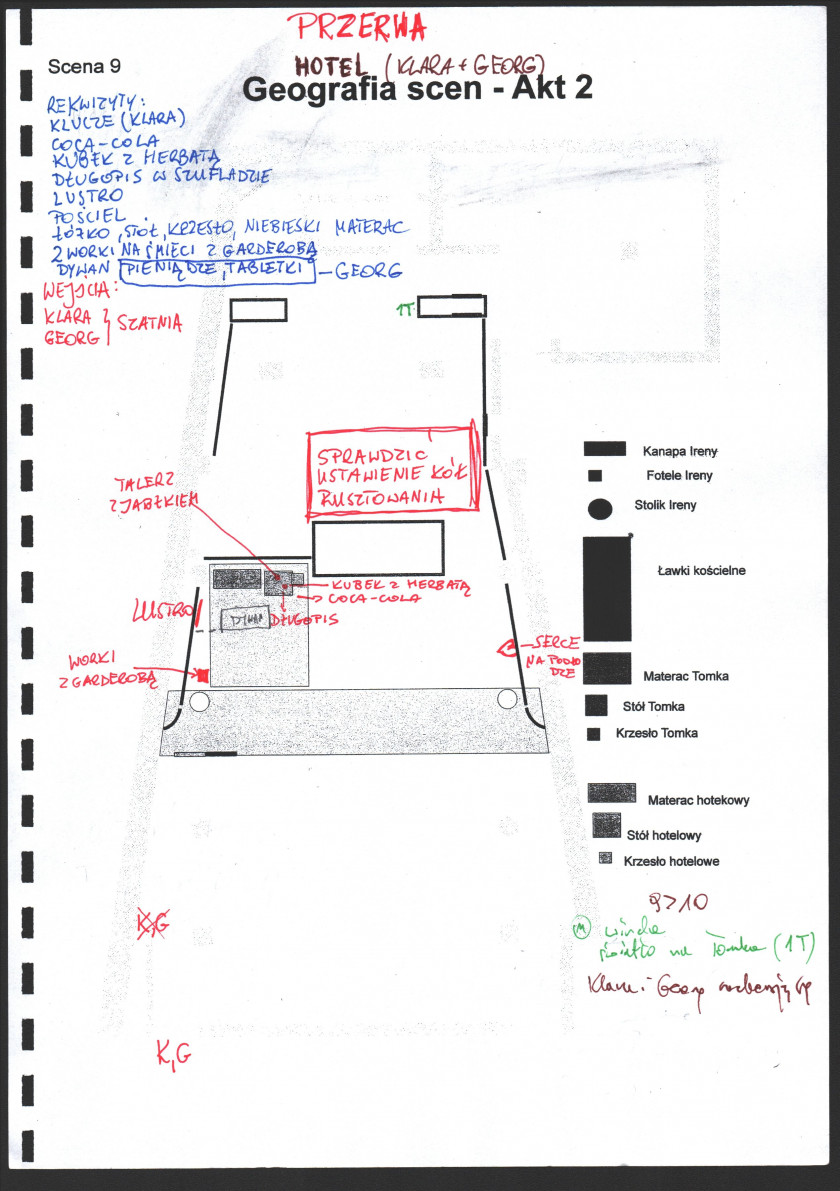 PRZERWA
HOTEL (KLARA + GEORG)
Scena 9
Geografia scen - Akt 2
REKWIZYTY:
KLUCZE (KLARA)
COCA-COLA
KUBEK Z HERBATĄ
DŁUGOPIS W SZUFLADZIE
LUSTRO
POŚCIEL
ŁÓŻKO, STÓŁ, KRZESŁO, NIEBIESKI MATERAC
2 WORKI NA ŚMIECI Z GARDEROBĄ
DYWAN PIENIĄDZE, TABLETKI - GEORG
WEJŚCIA:
KLARA } SZATNIA
GEORG
1T
SPRAWDZIC
USTAWIENIE KÓŁ
RUSZTOWANIA
TALERZ
Z JABŁKIEM
KUBEK Z HERBATĄ
COCA-COLA
DŁUGOPIS
DYWAN
LUSTRO
WORKI
Z GARDEROBĄ
SERCE
NA PODŁO
DZE
Kanapa Ireny
Fotele Ireny
Stolik Ireny
Ławki kościelne
Materac Tomka
Stół Tomka
Krzesło Tomka
Materac hotekowy
Stół hotelowy
Krzesło hotelowe
9>10
M winda
światło na Tomka (1T)
Klara i Georg
K,G
K,G